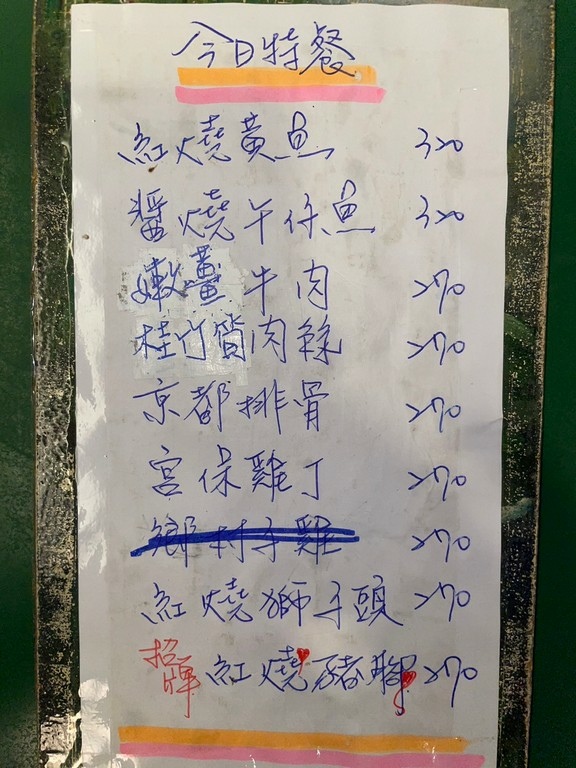 今日特餐
紅燒黃魚 320
醬燒午仔魚 320
嫩薑牛肉 270
桂竹筍肉絲 270
京都排骨 270
宮保雞丁 270
鄉村子雞 270
紅燒獅子頭 270
招牌 紅燒豬腳 270